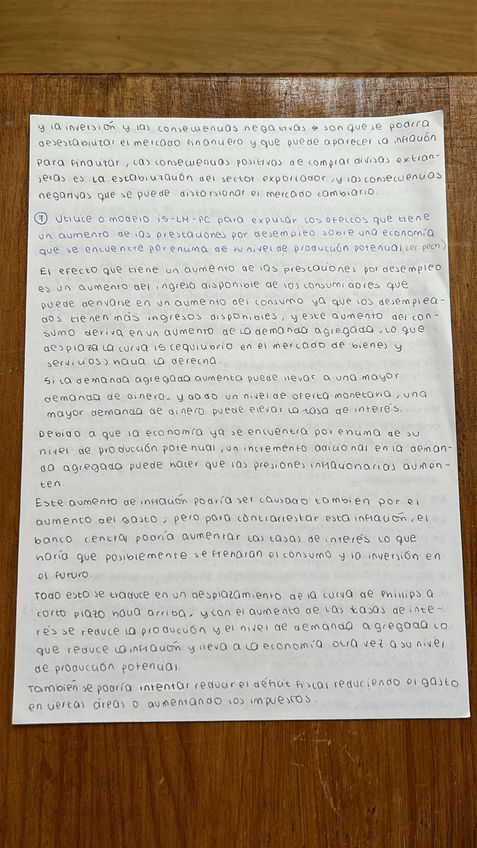 y la inversión y las consecuencias negativas son que se podría
desestabilizar el mercado financiero y que puede aparecer la inflación
para finalizar, las consecuencias positivas de comprar divisas extran-
jeras es la estabilización del sector exportador, y las consecuencias
negativas que se puede distorsionar el mercado cambiario.
⑦ Utilice o modelo IS-LM-PC para explicar los efectos que tiene
un aumento de las prestaciones por desempleo sobre una economía
que se encuentre por encima de su nivel de producción potencial (ec pech)
El efecto que tiene un aumento de las prestaciones por desempleo
es un aumento del ingreso disponible de los consumidores que
puede derivarse en un aumento del consumo ya que los desemplea-
dos tienen más ingresos disponibles, y este aumento del con-
sumo deriva en un aumento de la demanda agregada, lo que
desplaza la curva IS (equilibrio en el mercado de bienes y
servicios) hacia la derecha.
Si la demanda agregada aumenta puede llevar a una mayor
demanda de dinero, y dado un nivel de oferta monetaria, una
mayor demanda de dinero puede elevar la tasa de interés.
Debido a que la economía ya se encuentra por encima de su
nivel de producción potencial, un incremento adicional en la deman-
da agregada puede hacer que las presiones inflacionarias aumen-
ten.
Este aumento de inflación podría ser causado tambien por el
aumento del gasto, pero para contrarrestar esta inflación, el
banco central podría aumentar las tasas de interés lo que
haría que posiblemente se frenaran el consumo y la inversión en
el futuro.
Todo esto se traduce en un desplazamiento de la curva de Phillips a
corto plazo hacia arriba, y con el aumento de las tasas de inte-
rés se reduce la producción y el nivel de demanda agregada lo
que reduce la inflación y lleva a la economía otra vez a su nivel
de producción potencial.
También se podría intentar reducir el déficit fiscal reduciendo el gasto
en ciertas áreas o aumentando los impuestos.